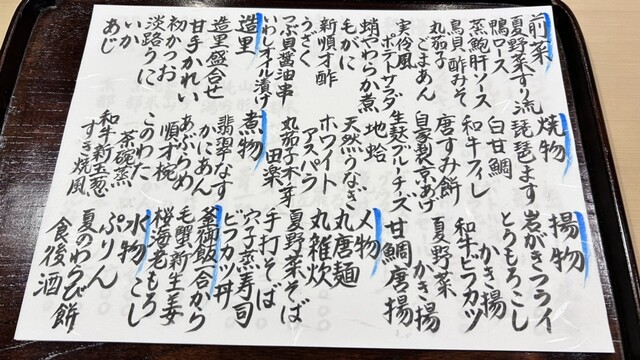 前菜
夏野菜すり流
鴨ロース
蒸鮑肝ソース
鳥貝酢みそ
丸茄子
ごまあん
実伶風
ポテトサラダ
蛸やわらか煮
毛がに
新順才酢
うざく
つぶ貝醤油串
いわしオイル漬け
造里
造里盛合せ
甘手かれい
初かつお
淡路うに
いか
あじ
焼物
琵琶ます
白甘鯛
和牛フィレ
唐すみ餅
自家製京あげ
生麩ブルーチーズ
地蛤
天然うなぎ
ホワイト
アスパラ
丸茄子木ノ芽
田楽
煮物
翡翠なす
かにあん
あぶらめ
順才椀
このわた
茶碗蒸
和牛新玉葱
すき焼風
揚物
岩がきフライ
とうもろこし
かき揚
和牛ビフカツ
夏野菜
かき揚
甘鯛唐揚
〆物
丸唐麺
丸雑炊
夏野菜そば
手打そば
穴子蒸寿司
ビフカツ丼
釜御飯一合から
毛蟹新生姜
桜海老もろ
こし
水物
ぷりん
夏のわらび餅
食後酒